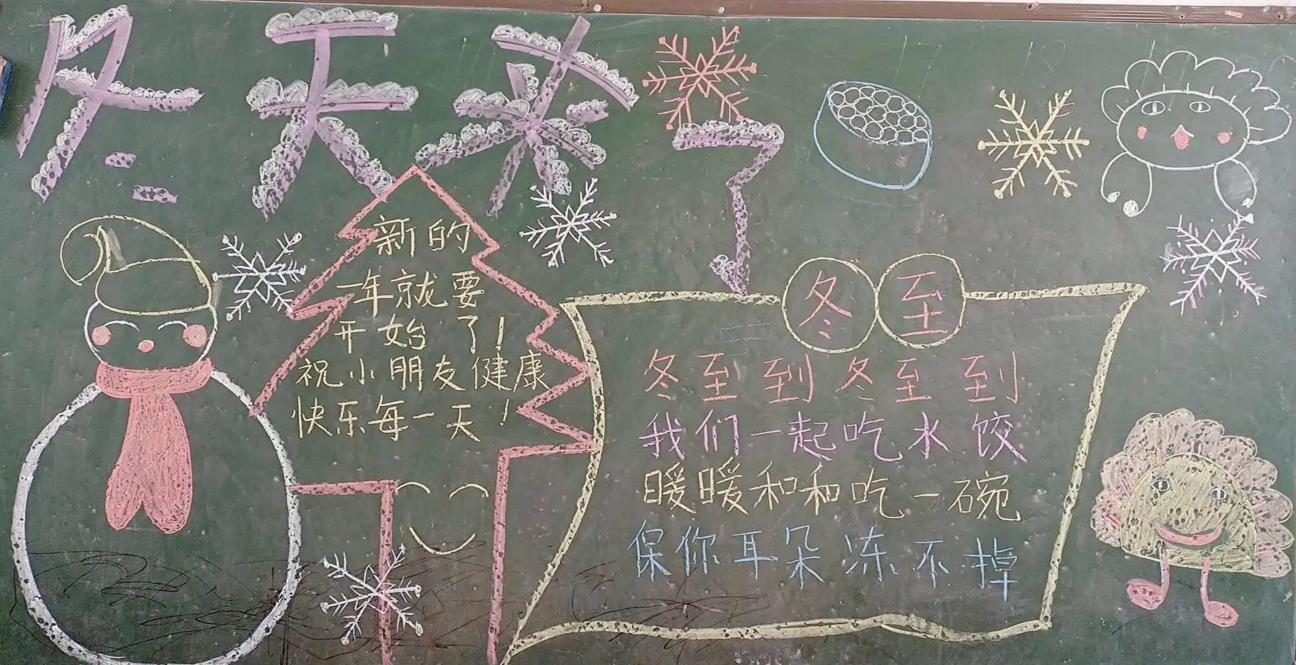 冬天来了
新的
一年就要
开始了!
祝小朋友健康
快乐每一天!
冬至
冬至到冬至到
我们一起吃水饺
暖暖和和吃一碗
保你耳朵冻不掉